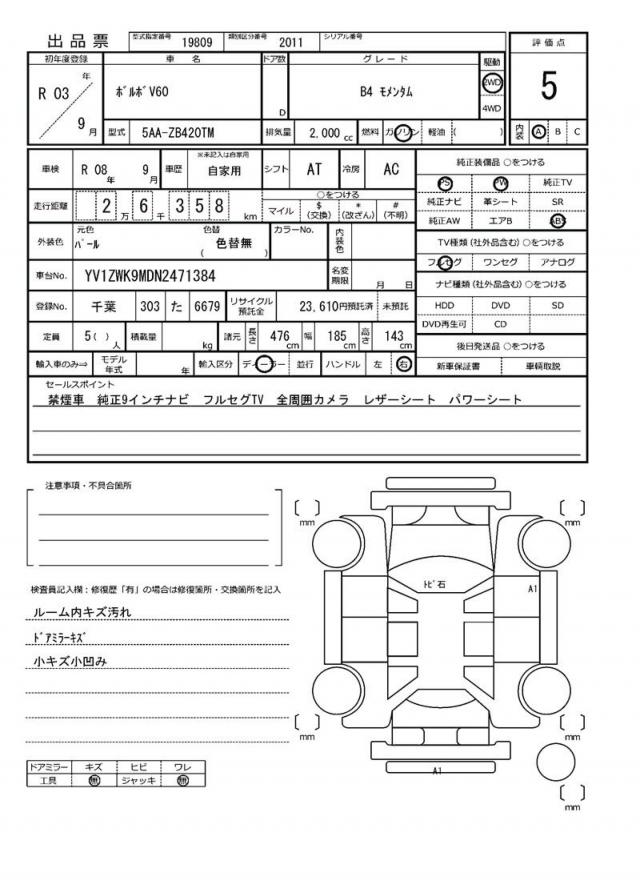 出品票 型式指定番号 19809 類別区分番号 2011 シリアル番号
評価点
初年度登録 車名 ドア数 グレード 駆動
R 03 年 9 月 ﾎﾞﾙﾎﾞV60 D B4 ﾓﾒﾝﾀﾑ 2WD 4WD
5
型式 5AA-ZB420TM 排気量 2,000 cc 燃料 ガソリン 軽油 ( ) 内装 A B C
車検 R 08 年 9 月 車歴 ※未記入は自家用 自家用 シフト AT 冷房 AC
走行距離 2 万 6 千 3 5 8 km
○をつける
マイル $ (交換) * (改ざん) # (不明)
外装色 元色 ﾊﾟｰﾙ 色替 ( 色替無 ) カラーNo. 内装色
車台No. YV1ZWK9MDN2471384 名変期限 月 日
登録No. 千葉 303 た 6679 リサイクル預託金 23,610円預託済 未預託
定員 5( ) 人 積載量 kg 諸元 長さ 476 cm 幅 185 cm 高さ 143 cm
輸入車のみ⇒ モデル年式 年 輸入区分 ディーラー 並行 ハンドル 左 右
純正装備品 ○をつける
PS PW 純正TV
純正ナビ 革シート SR
純正AW エアB ABS
TV種類 (社外品含む) ○をつける
フルセグ ワンセグ アナログ
ナビ種類 (社外品含む) ○をつける
HDD DVD SD
DVD再生可 CD
後日発送品 ○をつける
新車保証書 車輌取説
セールスポイント
禁煙車 純正9インチナビ フルセグTV 全周囲カメラ レザーシート パワーシート
注意事項・不具合箇所
検査員記入欄：修復歴「有」の場合は修復箇所・交換箇所を記入
ルーム内キズ汚れ
ﾄﾞｱﾐﾗｰｷｽﾞ
小キズ小凹み
ドアミラー キズ ヒビ ワレ
工具 無 ジャッキ 無
mm
mm
ﾄﾋﾞ石
A1
mm
mm
A1
mm